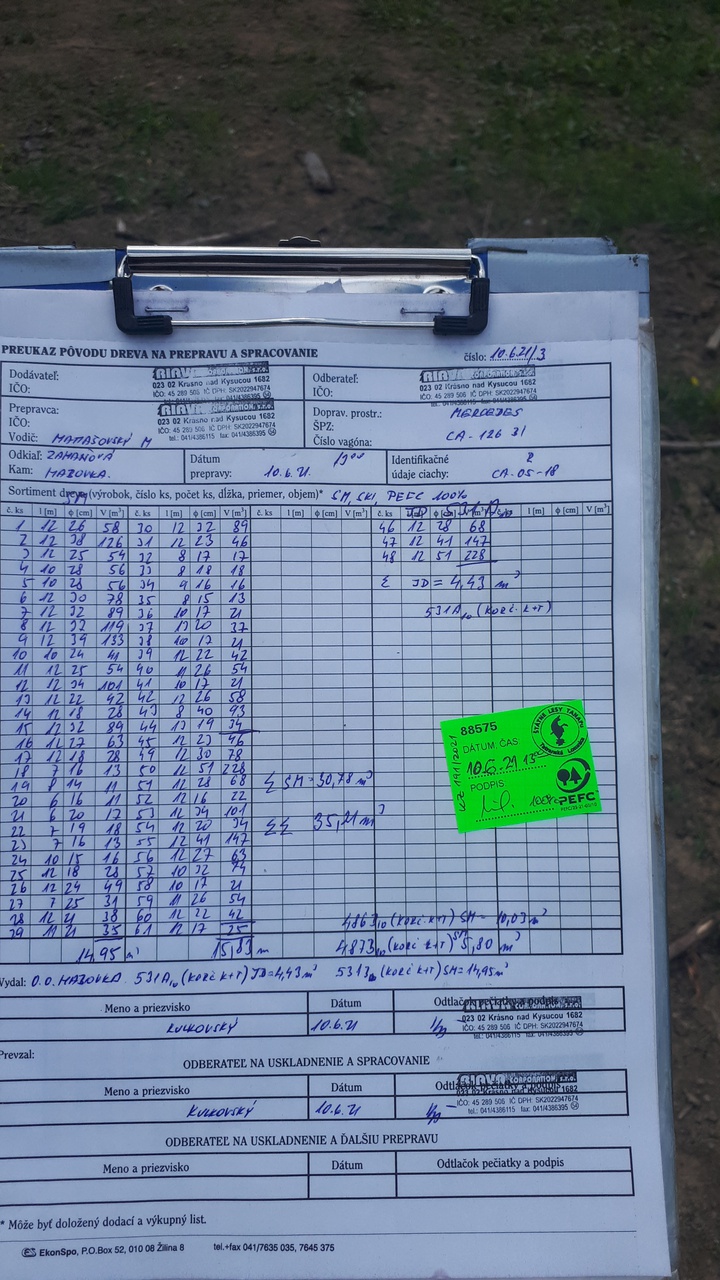 PREUKAZ PÔVODU DREVA NA PREPRAVU A SPRACOVANIE číslo: 10.6.21/3
Dodávateľ: Odberateľ:
IČO: 023 02 Krásno nad Kysucou 1682 IČO: 023 02 Krásno nad Kysucou 1682
IČO: 45 289 506 IČ DPH: SK2022947674 IČO: 45 289 506 IČ DPH: SK2022947674
Prepravca: Doprav. prostr.: MERCEDES
IČO: 023 02 Krásno nad Kysucou 1682 ŠPZ:
IČO: 45 289 506 IČ DPH: SK2022947674
Vodič: MATTAŠOVSKÝ M tel.: 041/4386115 fax: 041/4386395 Číslo vagóna: CA-126 31
Odkiaľ: ZAMANOVÁ Dátum Identifikačné
Kam: HAZOVKA. prepravy: 10.6.21. údaje ciachy: CA-05-18
Sortiment dreva (výrobok, číslo ks, počet ks, dĺžka, priemer, objem)* SM, SKI, PEFC 100%
SM
č. ks l [m] ϕ [cm] V [m³] č. ks l [m] ϕ [cm] V [m³] č. ks l [m] ϕ [cm] V [m³] č. ks l [m] ϕ [cm] V [m³] č. ks l [m] ϕ [cm] V [m³]
1 12 26 58 30 12 32 89 46 12 28 68
2 12 38 126 31 12 23 46 47 12 41 147
3 12 25 54 32 8 17 17 48 12 51 228
4 10 28 56 33 8 18 18
5 10 28 56 34 9 16 16 Σ JD = 4,43 m³
6 12 30 78 35 8 15 13
7 12 32 89 36 10 17 21 531A10 (KORČ. K+T)
8 12 37 37 13 20 37
9 12 39 133 38 10 17 21
10 10 24 41 39 12 22 42
11 12 25 54 40 11 26 54
12 12 34 101 41 10 17 21
13 12 22 42 42 12 26 58
14 12 18 28 43 8 40 93
15 12 32 89 44 13 19 34
16 12 27 63 45 12 23 46
17 12 18 28 49 12 30 78
18 7 16 13 50 12 51 228
19 8 14 11 51 12 28 68 Σ SM = 30,78 m³
20 6 16 11 52 12 16 22
21 6 20 17 53 12 34 101
22 7 19 18 54 12 20 34 ΣΣ 35,21 m³
23 7 16 13 55 12 41 147
24 10 15 16 56 12 27 63
25 12 18 28 57 10 32 74
26 12 24 49 58 10 17 21
27 7 25 31 59 11 26 54
28 12 21 38 60 12 22 42 4863 10 (KORČ K+T) SM = 10,03 m³
29 11 21 35 61 12 17 25
14,95 m³ 15,83 m 4873 10 (KORČ K+T) SM 5,80 m³
88575
DÁTUM, ČAS
10.6.21
PODPIS
100% PEFC
ŠTÁTNE LESY TANAPU
Tatranská Lomnica
Vydal: O.O. HAZOVKA 531A10 (KORČ K+T) JD=4,43 m³ 5313 10 (KORČ K+T) SM=14,95 m³
Meno a priezvisko Dátum Odtlačok pečiatky a podpis
KULKOVSKÝ 10.6.21 023 02 Krásno nad Kysucou 1682
IČO: 45 289 506 IČ DPH: SK2022947674
tel.: 041/4386115 fax: 041/4386395
Prevzal: ODBERATEĽ NA USKLADNENIE A SPRACOVANIE
Meno a priezvisko Dátum Odtlačok pečiatky a podpis
KULKOVSKÝ 10.6.21 IČO: 45 289 506 IČ DPH: SK2022947674
tel.: 041/4386115 fax: 041/4386395
ODBERATEĽ NA USKLADNENIE A ĎALŠIU PREPRAVU
Meno a priezvisko Dátum Odtlačok pečiatky a podpis
* Môže byť doložený dodací a výkupný list.
EkonSpo, P.O.Box 52, 010 08 Žilina 8 tel.+fax 041/7635 035, 7645 375